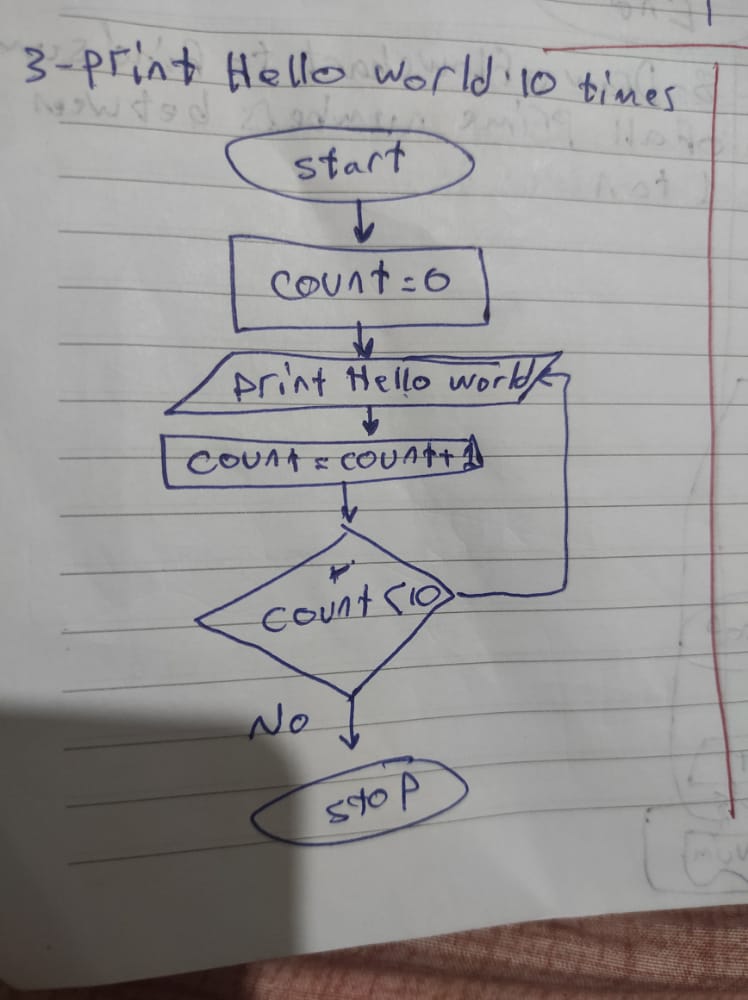 3-print Hello world 10 times
start
count = 0
print Hello world
count = count+1
count <10
No
stop